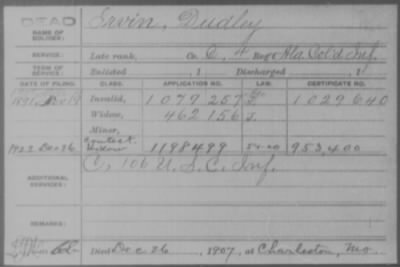 DEAD
NAME OF SOLDIER:
Ervin, Dudley
SERVICE:
Late rank, Co. C, 4 Reg't Ala. Col'd Inf.
TERM OF SERVICE:
Enlisted , 1 Discharged , 1
DATE OF FILING. CLASS. APPLICATION NO. LAW. CERTIFICATE NO.
1891, Nov 19 Invalid, 1077 257 1029 640
Widow, 462 156
Minor,
1922 Dec 26 Contest. Widow 1198499 953,400
C, 106 U.S.C. Inf.
ADDITIONAL SERVICES:
REMARKS:
Died Dec 26, 1907, at Charleston, Mo